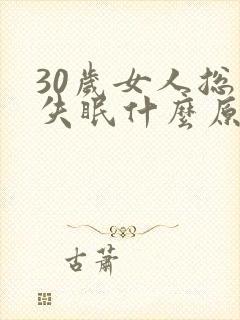 30歲女人總
失眠什麼原
古蕭